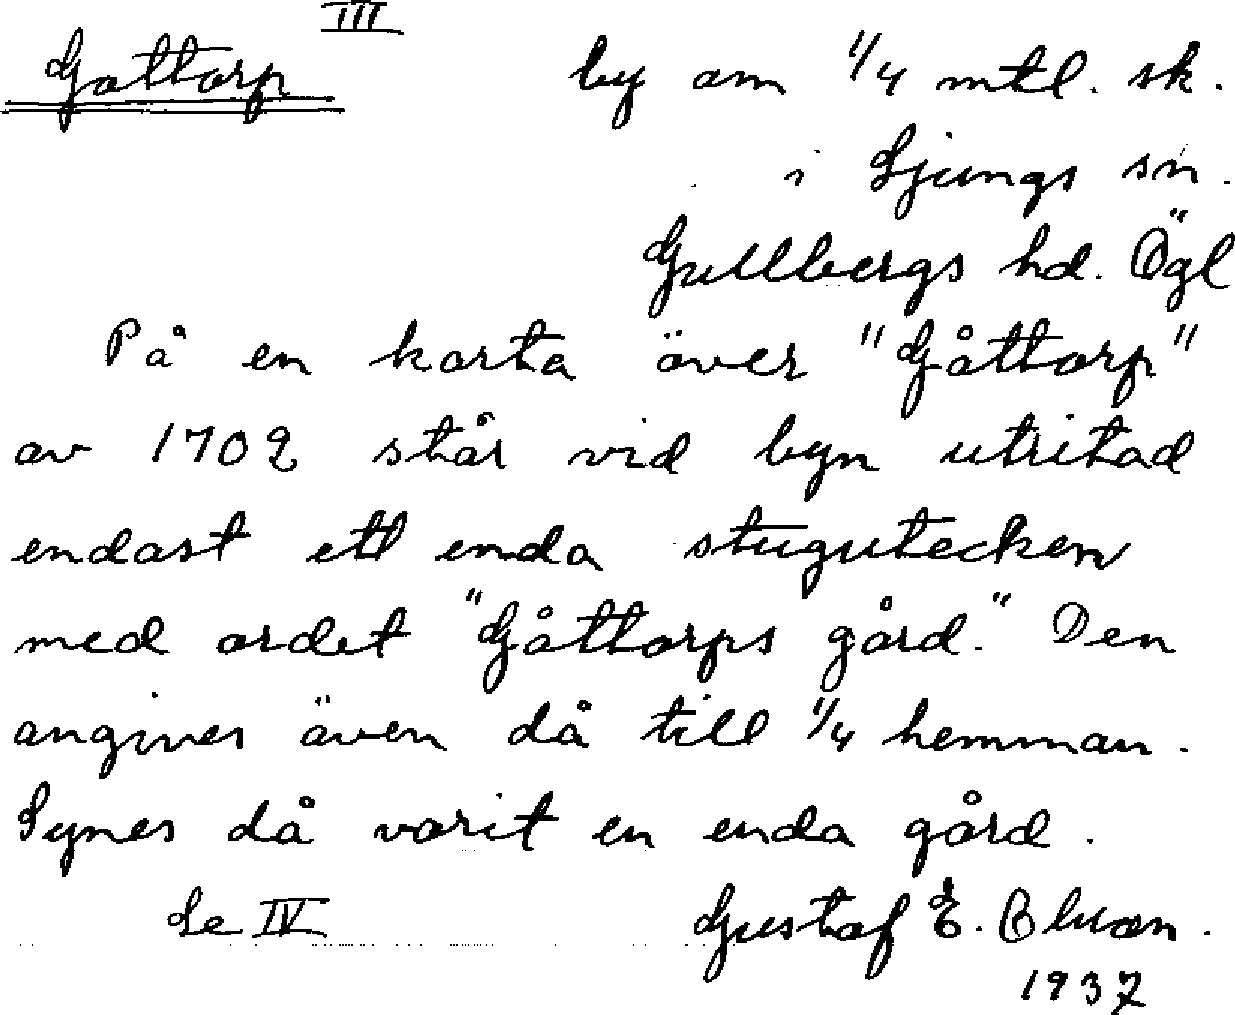 III
Gottorp by om 1/4 mtl. sk.
i Ljungs sn.
Gullbergs hd. Ögl
På en karta över "Gåttorp"
av 1702 står vid byn utritad
endast ett enda stugutecken
med ordet "Gåttorps gård." Den
angives även då till 1/4 hemman.
Synes då varit en enda gård.
Se IV Gustaf E.
1937